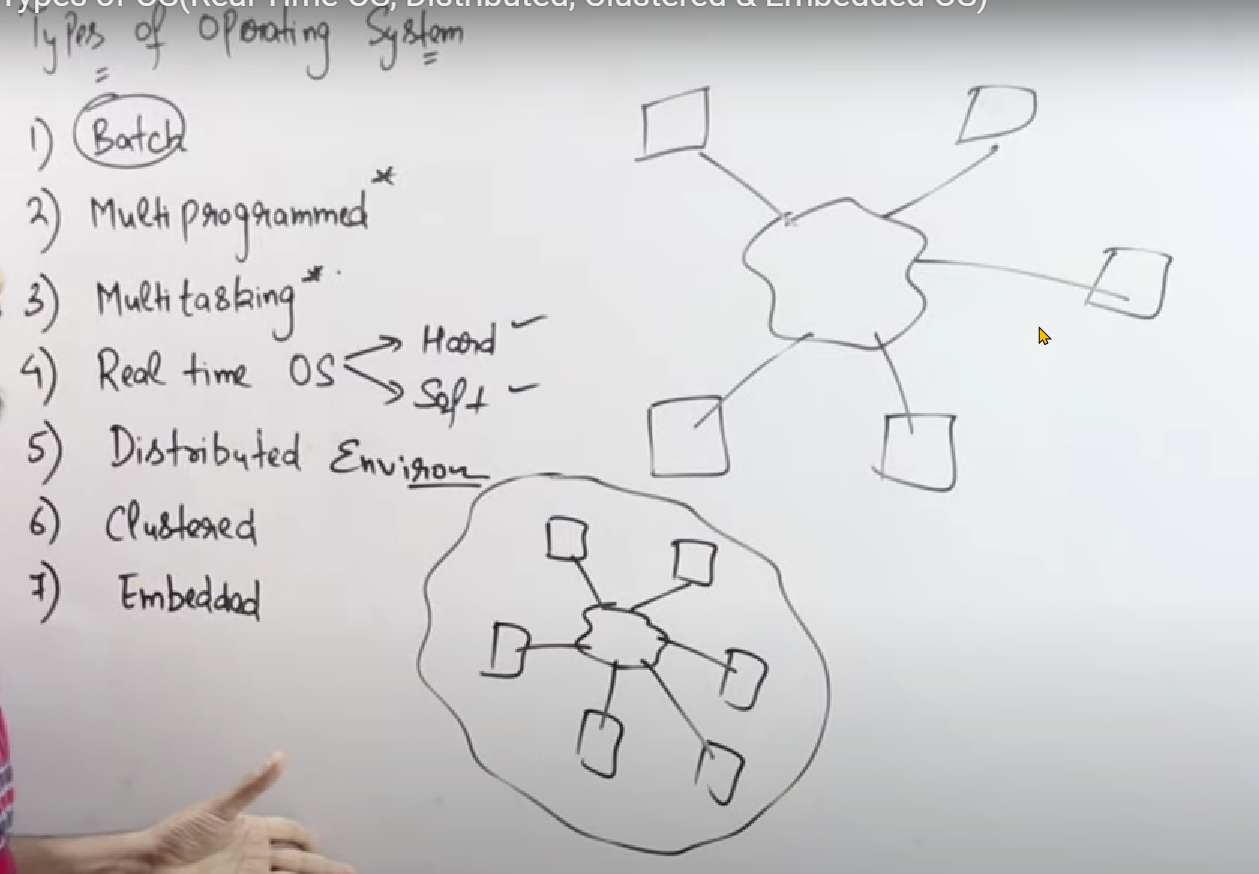 Types of OS(Real Time OS, Distributed, Clustered & Embedded OS)
Types of Operating System
1) Batch
2) Multiprogrammed*
3) Multitasking*
4) Real time OS
Hard
Soft
5) Distributed Environ
6) Clustered
7) Embedded